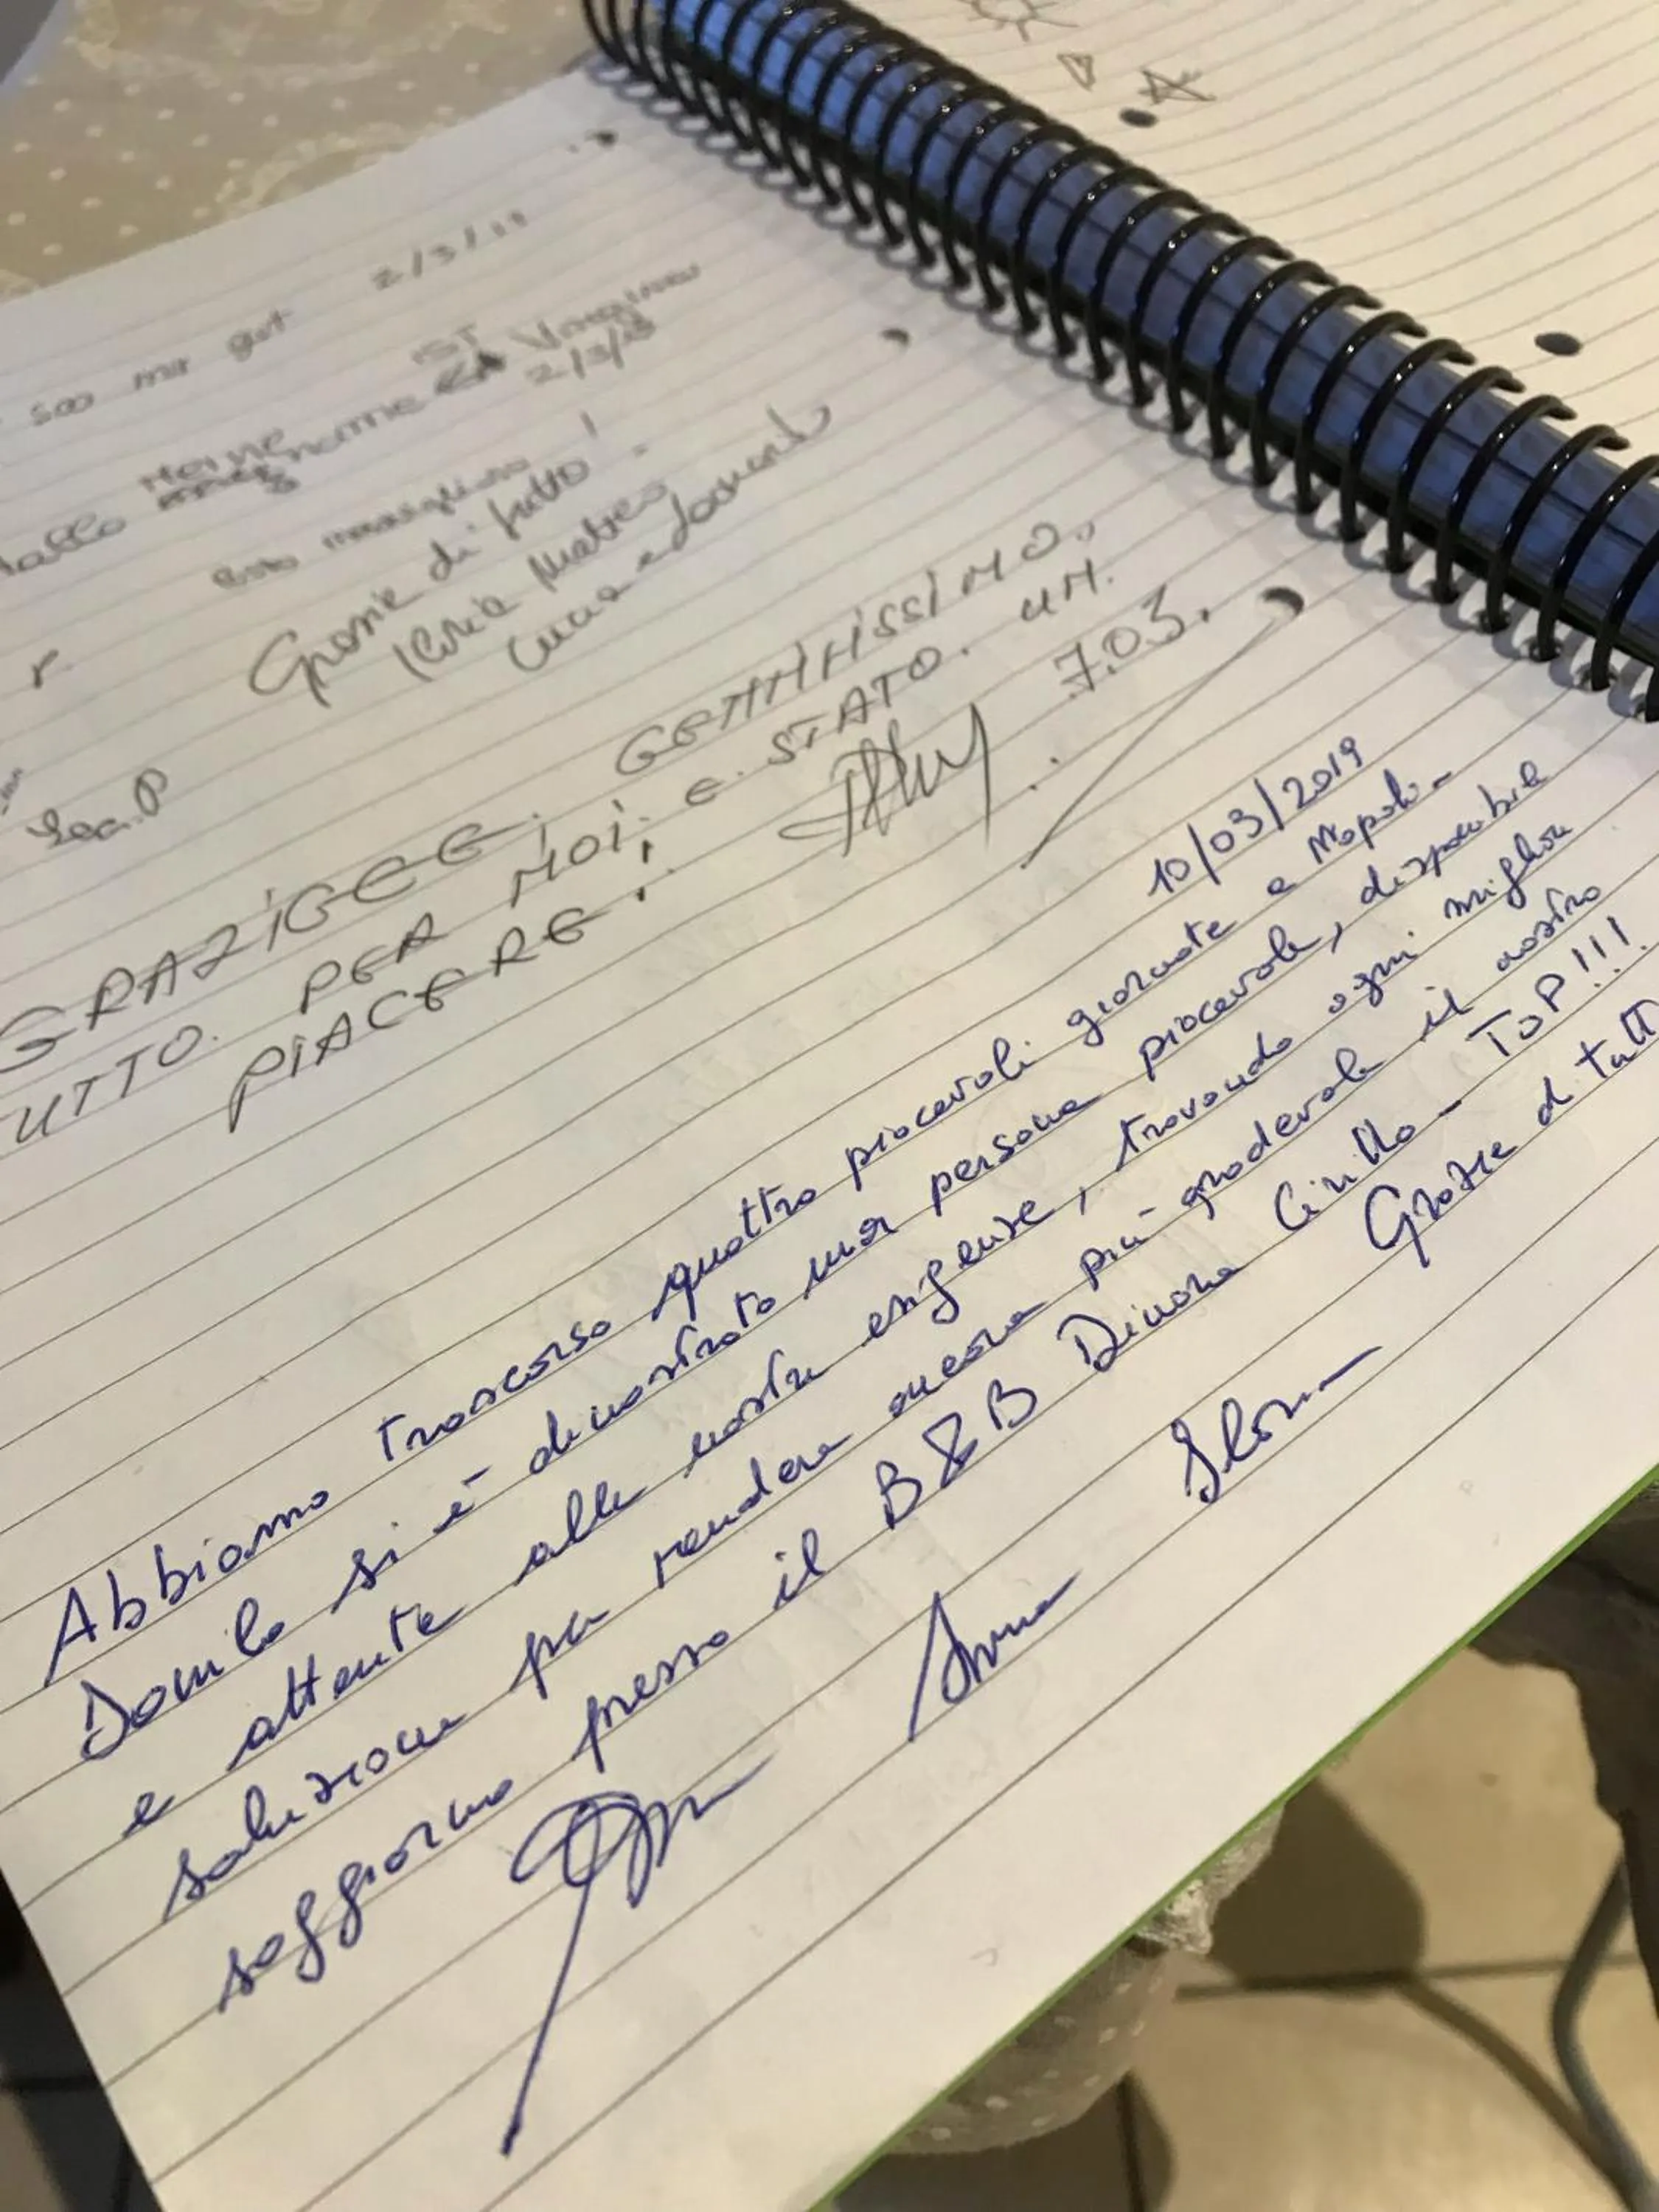 2/3/19
soo mir gut
Meine
name IST Virginia
2/3/19
Grazie di tutto!
Luca e Leonardo
r
Lea. P
GRAZIGEE. GETTITISSIMO.
UTTO. PER NOI, E. STATO. UN.
PIACERE! 7.03.
10/03/2019
Abbiamo trascorso quattro piacevoli giornate a Napoli-
Danilo si è dimostrato una persona piacevole, disponibile
e attente alle nostre esigenze, trovando ogni miglior
soluzione per rendere ancora più gradevole il nostro
soggiorno presso il B&B Dimora Cirillo- TOP!!!
Grazie di tutt
Anna